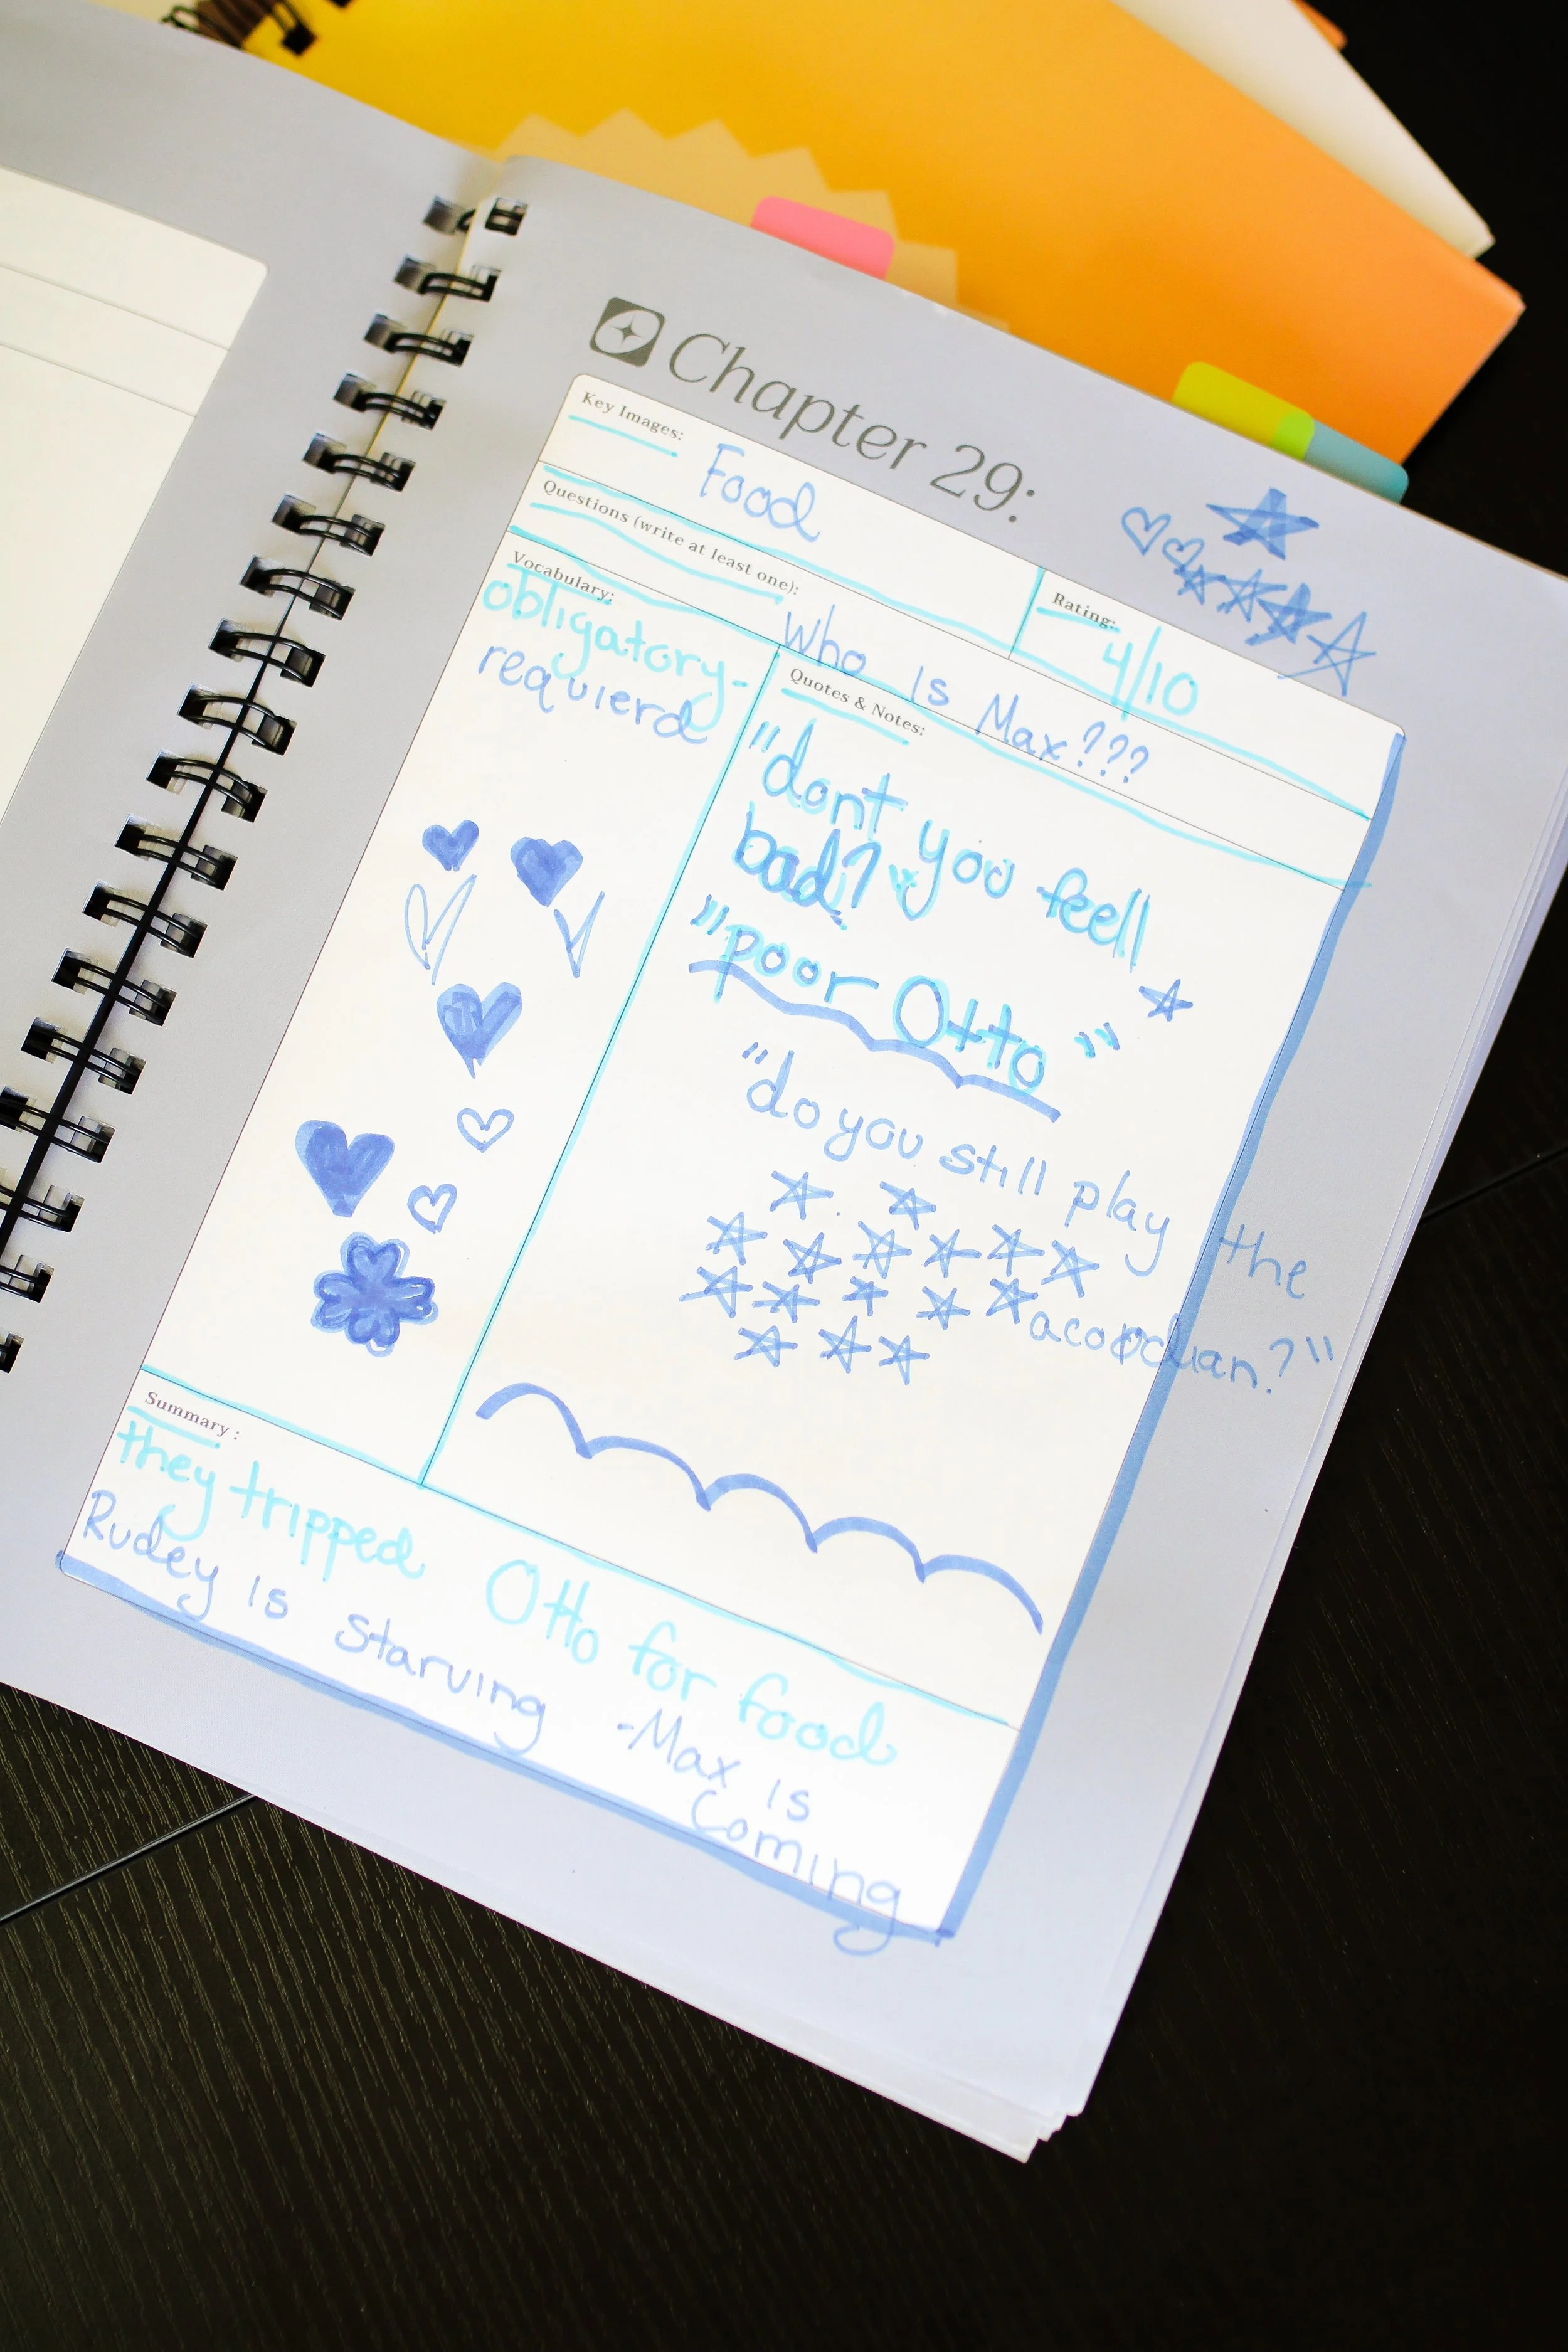 Chapter 29:
Key Images:
Food
Rating:
4/10
Questions (write at least one):
Who is Max???
Vocabulary:
obligatory-
requierd
Quotes & Notes:
"dont you feell
bad?"
"poor Otto"
"do you still play the
acordian?"
Summary:
they tripped Otto for food
Rudey is starving -Max is
Coming